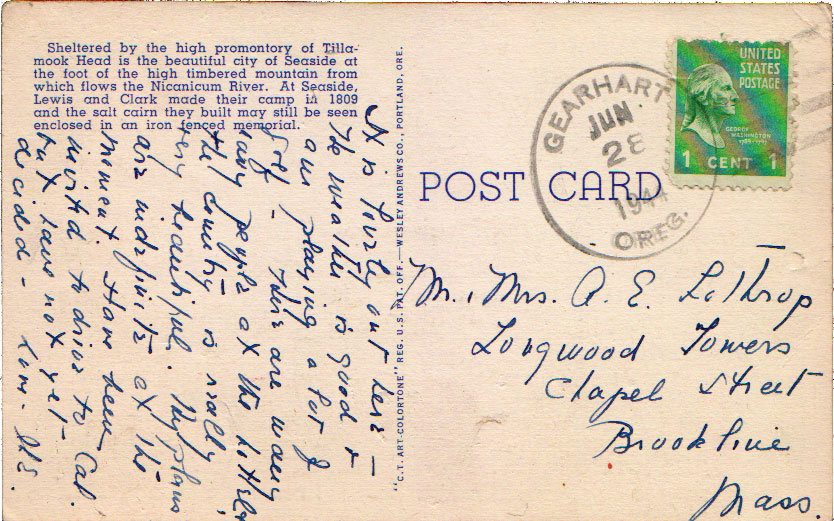 Sheltered by the high promontory of Tilla-
mook Head is the beautiful city of Seaside at
the foot of the high timbered mountain from
which flows the Nicanicum River. At Seaside,
Lewis and Clark made their camp in 1809
and the salt cairn they built may still be seen
enclosed in an iron fenced memorial.
It is lovely out here —
The weather is good &
am playing a lot of
golf - There are many
navy people at the hotel &
the country is really
very beautiful. My plans
are indefinite at the
moment. Have been
invited to drive to Cal.
but have not yet
decided -
"C.T. ART-COLORTONE" REG. U.S. PAT. OFF.—WESLEY ANDREWS CO., PORTLAND, ORE.
POST CARD
GEARHART
JUN
28
1944
OREG.
UNITED
STATES
POSTAGE
GEORGE
WASHINGTON
1 CENT 1
Mr. & Mrs. A. E. Lothrop
Longwood Towers
Chapel Street
Brookline
Mass.